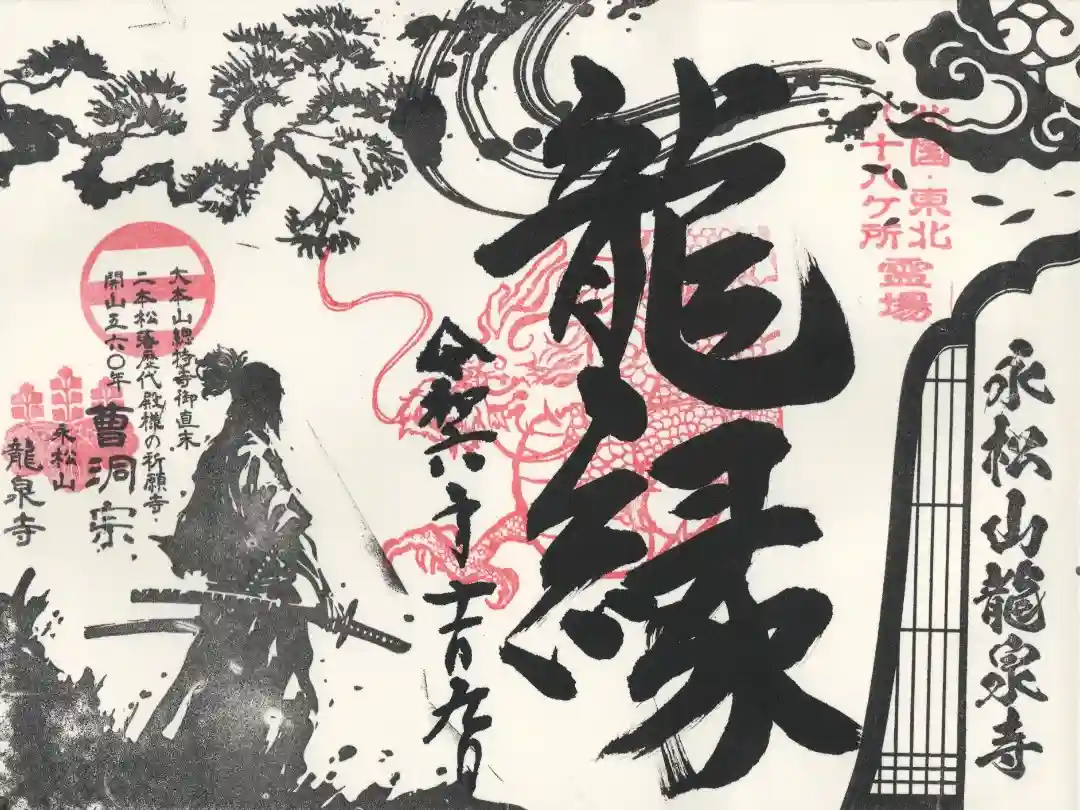 永松山龍泉寺
国・東北
十八ケ所霊場
龍縁
令和六年十一月九日
大本山總持寺御直末
二本松藩歴代殿様の祈願寺・
開山五六〇年 曹洞宗
永松山
龍泉寺